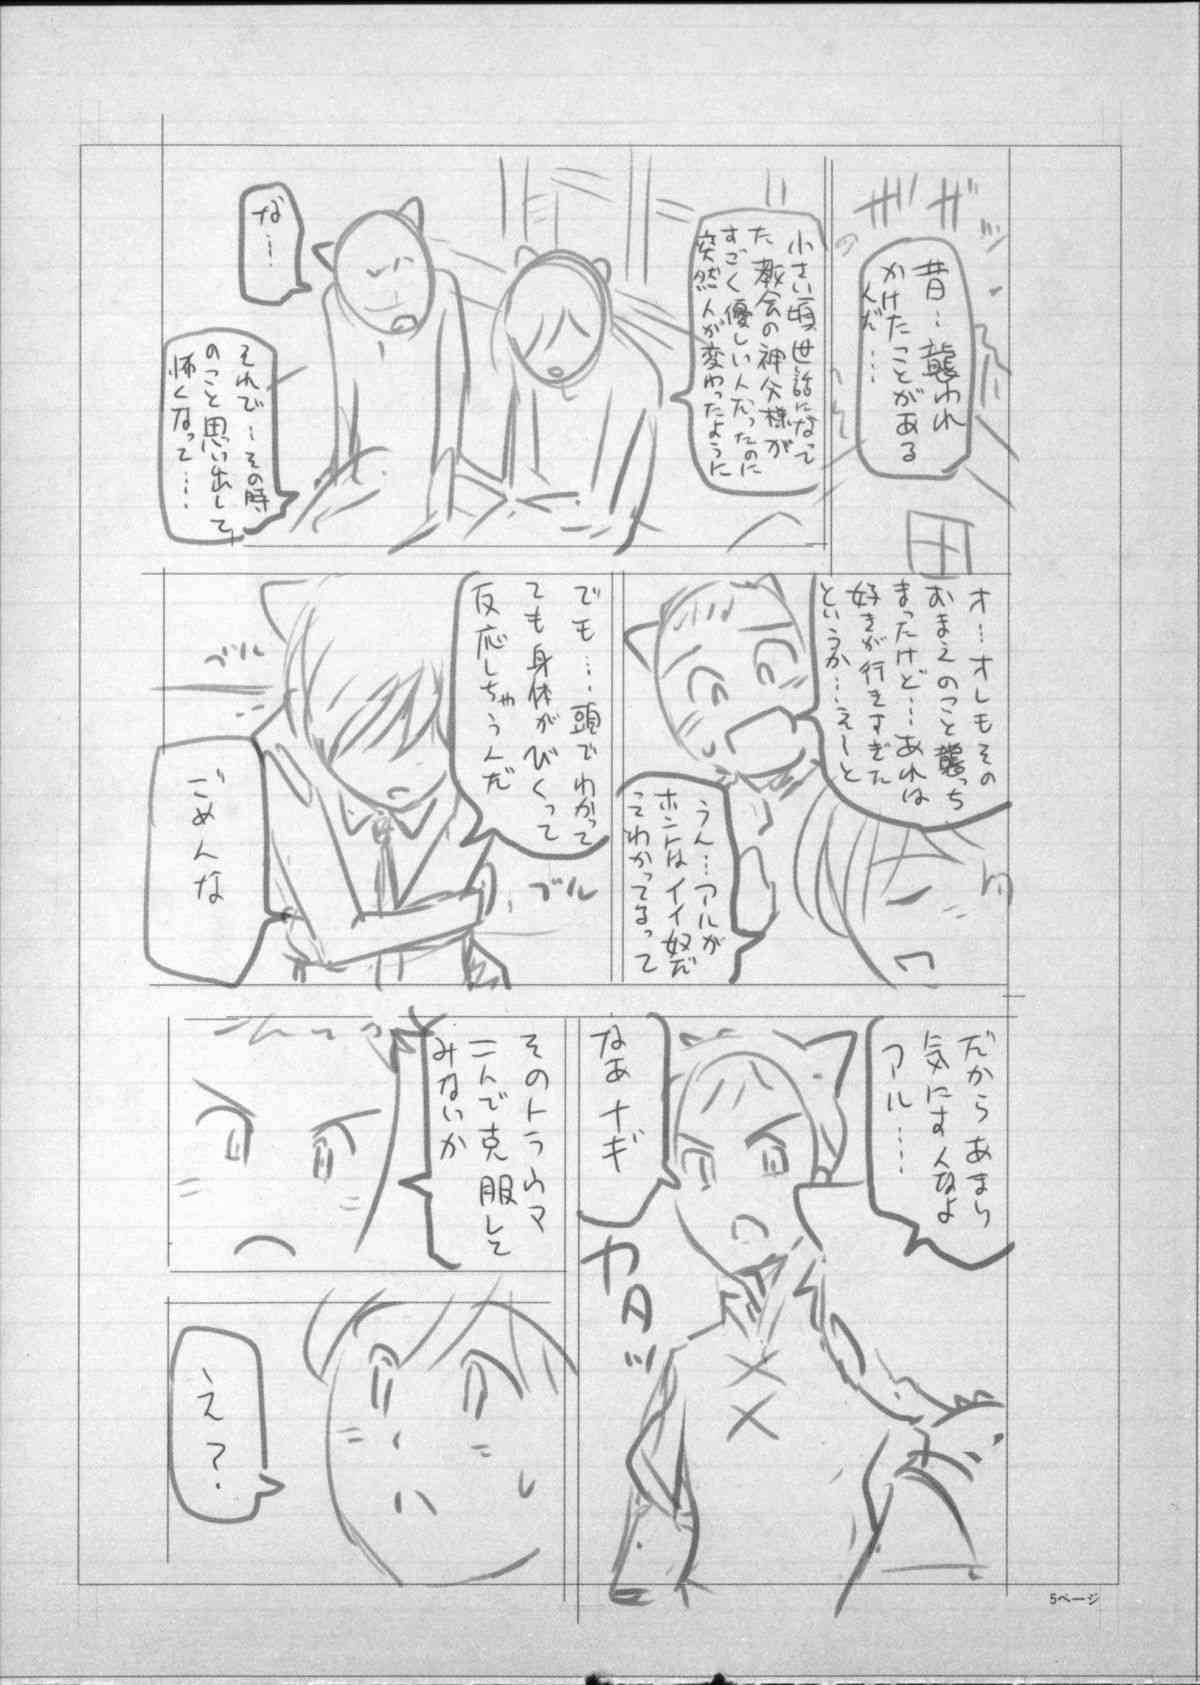 ザザッ
昔…襲われ
かけたことがある
んだ…
小さい頃、世話になって
た教会の神父様が
すごく優しい人だったのに
突然人が変わったように
な…
それで…その時
のこと思い出して
怖くなって…
オ…オレもその
おまえのこと襲っち
まったけど…あれは
好きが行きすぎた
というか…えーと
うん…アルが
ホントはイイ奴だ
ってわかってるって
でも…頭でわかって
ても身体がびくって
反応しちゃうんだ
ブル
ブル
ごめんな
だからあまり
気にすんなよ
アル…
なあナギ
ガタッ
そのトラウマ
二人で克服して
みないか
え?
5ページ